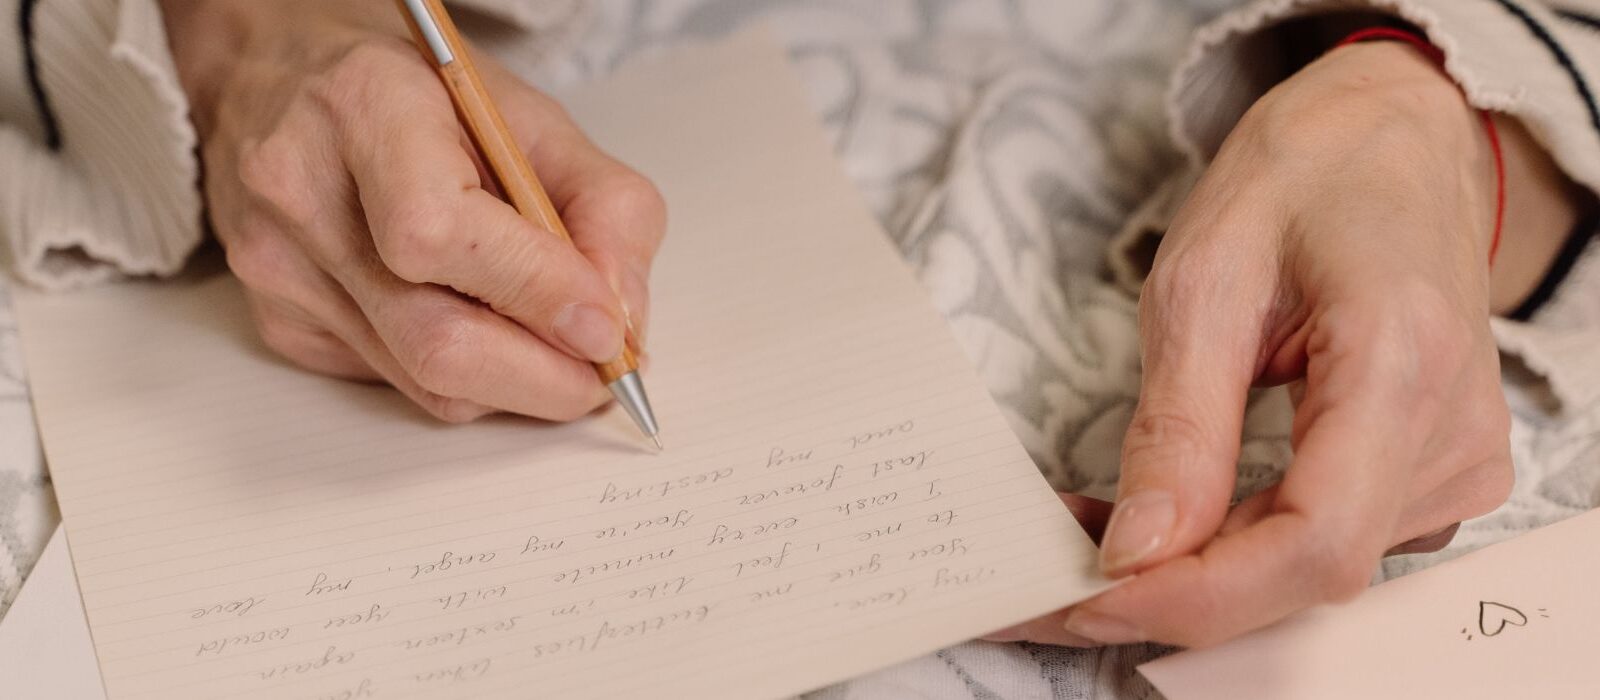 My love,
you give me butterflies when you
to me, i feel like i'm sexteen again.
I wish every minute with you would
last forever. You're my angel, my love
and my destiny.